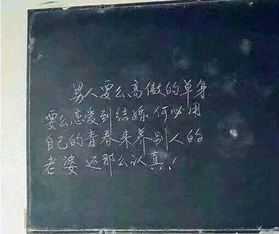 男人要么高傲的单身
要么恋爱到结婚.何必用
自己的青春来养别人的
老婆 还那么认真！！